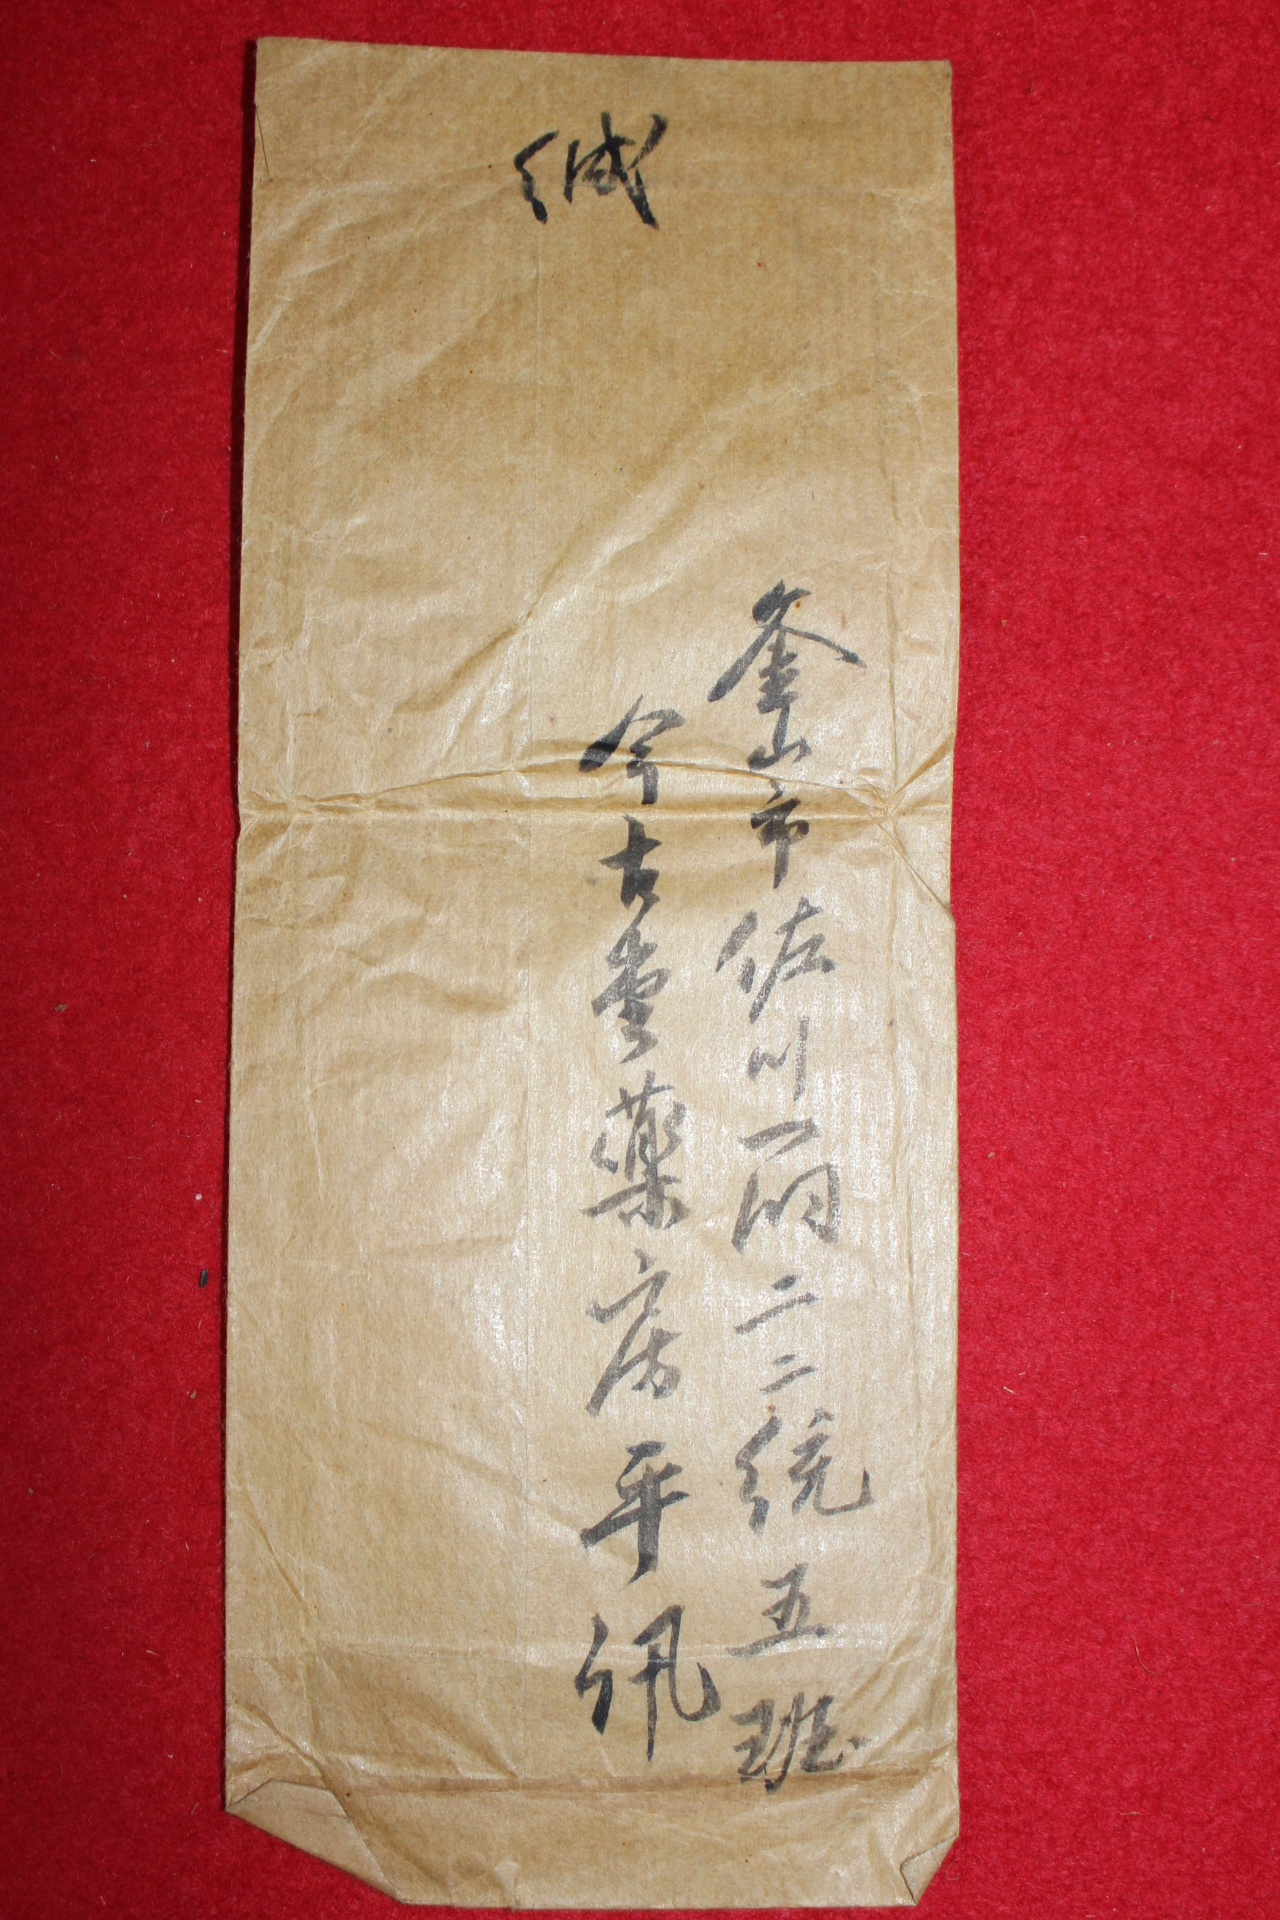 緘
釜山市佐川一洞二二統五班
今古堂藥房平訊